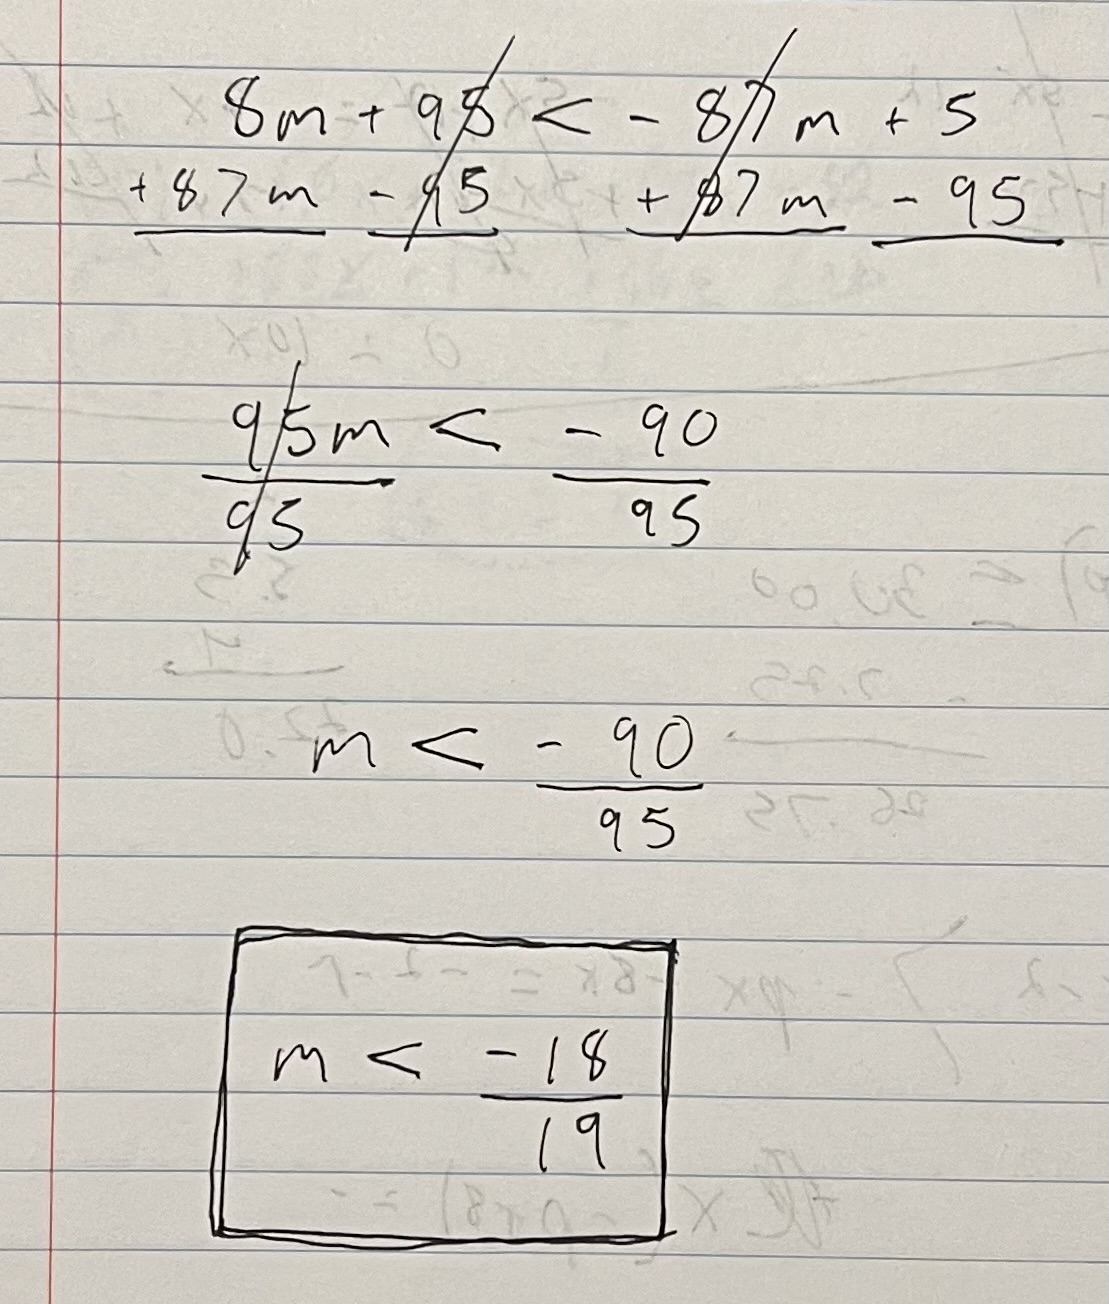 8m + 95 < - 87m + 5
+87m - 95 + 87m - 95
95m < - 90
95 95
m < - 90
95
m < -18
19